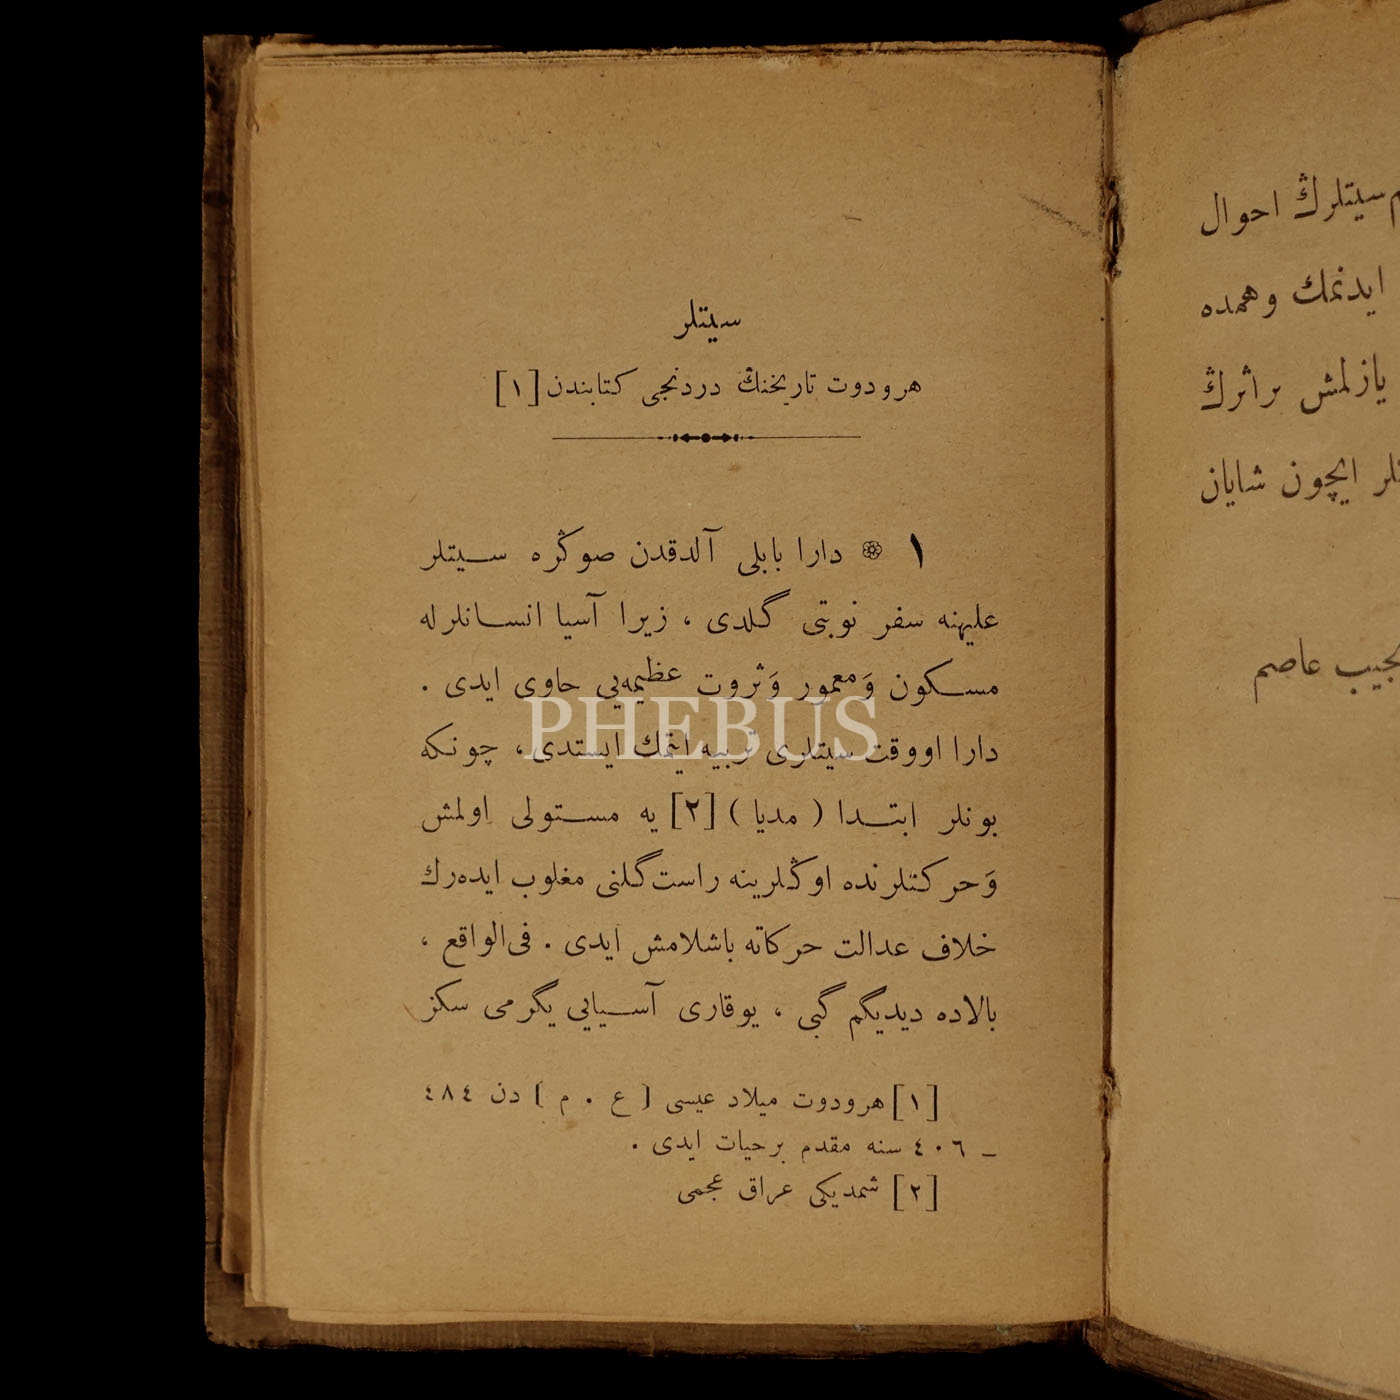 م سیتلرڭ احوال
ایدنمك وهمده
یازلمش بر اثرڭ
لر ایچون شایان
نجیب عاصم
سیتلر
هرودوت تاریخنڭ دردنجی كتابندن [١]
١ ❁ دارا بابلی آلدقدن صوڭره سیتلر
علیهنه سفر نوبتی گلدی ، زیرا آسیا انسانلرله
مسكون وَ معمور وَ ثروت عظیمه‌یی حاوی ایدی .
دارا اووقت سیتلری تربیه ایتمك ایستدی ، چونكه
بونلر ابتدا ( مدیا ) [٢] یه مستولی اولمش
وَ حركتلرنده اوڭلرینه راست‌گلنی مغلوب ایده‌رك
خلاف عدالت حركاته باشلامش ایدی . فی‌الواقع ،
بالاده دیدیگم گبی ، یوقاری آسیایی یگرمی سكز
[١] هرودوت میلاد عیسی ( ع . م ) دن ٤٨٤
ـ ٤٠٦ سنه مقدم برحیات ایدی .
[٢] شمدیكی عراق عجمی
PHEBUS